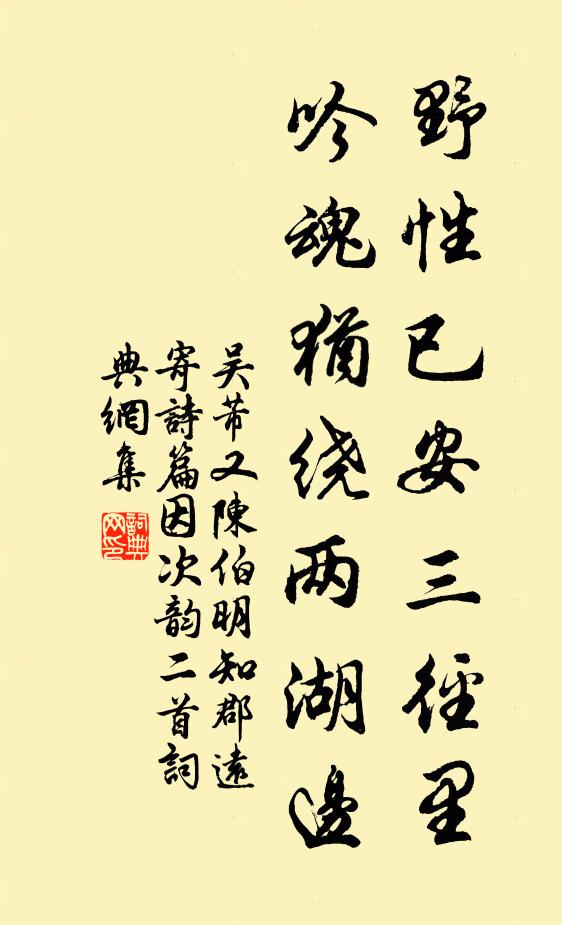 野性已安三径里
吟魂猶绕两湖邊
吴芾又陳伯明知郡遠
寄詩篇因次韵二首詞
典網集
詞典網印